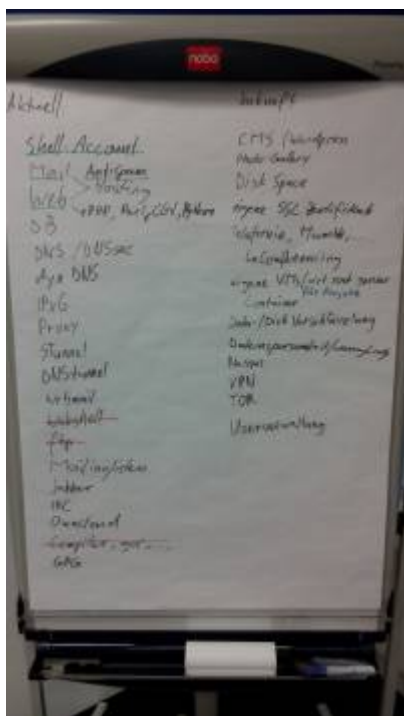 nobo
Aktuell
Shell Account
Mail Antispam
Hosting
Web PHP, Perl, CGI, Python
DB
DNS / DNSsec
Dyn DNS
IPv6
Proxy
Stunnel
DNStunnel
Webmail
Webshell
ftp
Mailinglisten
Jabber
IRC
Owncloud
Compiler, gcc, ...
GPG
Zukunft
CMS / Wordpress
Photo Gallery
Disk Space
eigene SSL Zertifikate
Telefonie, Mumble, ...
eigene VMs / virt. root server
Container
Daten-/Disk Verschlüsselung
VPN
TOR
Userverwaltung